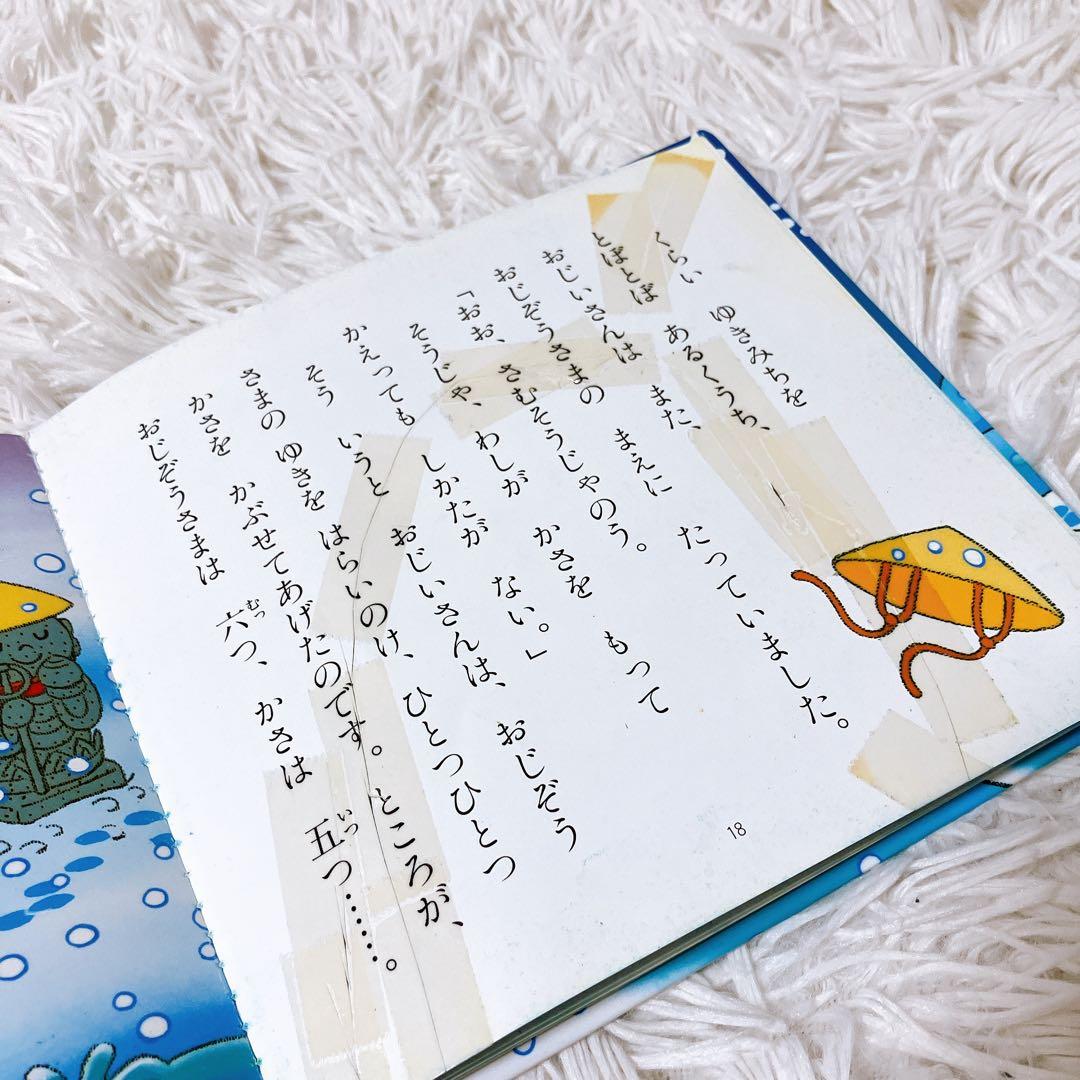 くらい ゆきみちを
とぼとぼ あるくうち、
おじいさんは また、
おじぞうさまの まえに たっていました。
「おお、さむそうじゃのう。
そうじゃ、わしが かさを もって
かえっても しかたが ない。」
そう いうと おじいさんは、おじぞう
さまの ゆきを はらいのけ、ひとつひとつ
かさを かぶせてあげたのです。ところが、
おじぞうさまは 六つ、かさは 五つ……。
むっ
いつ
18